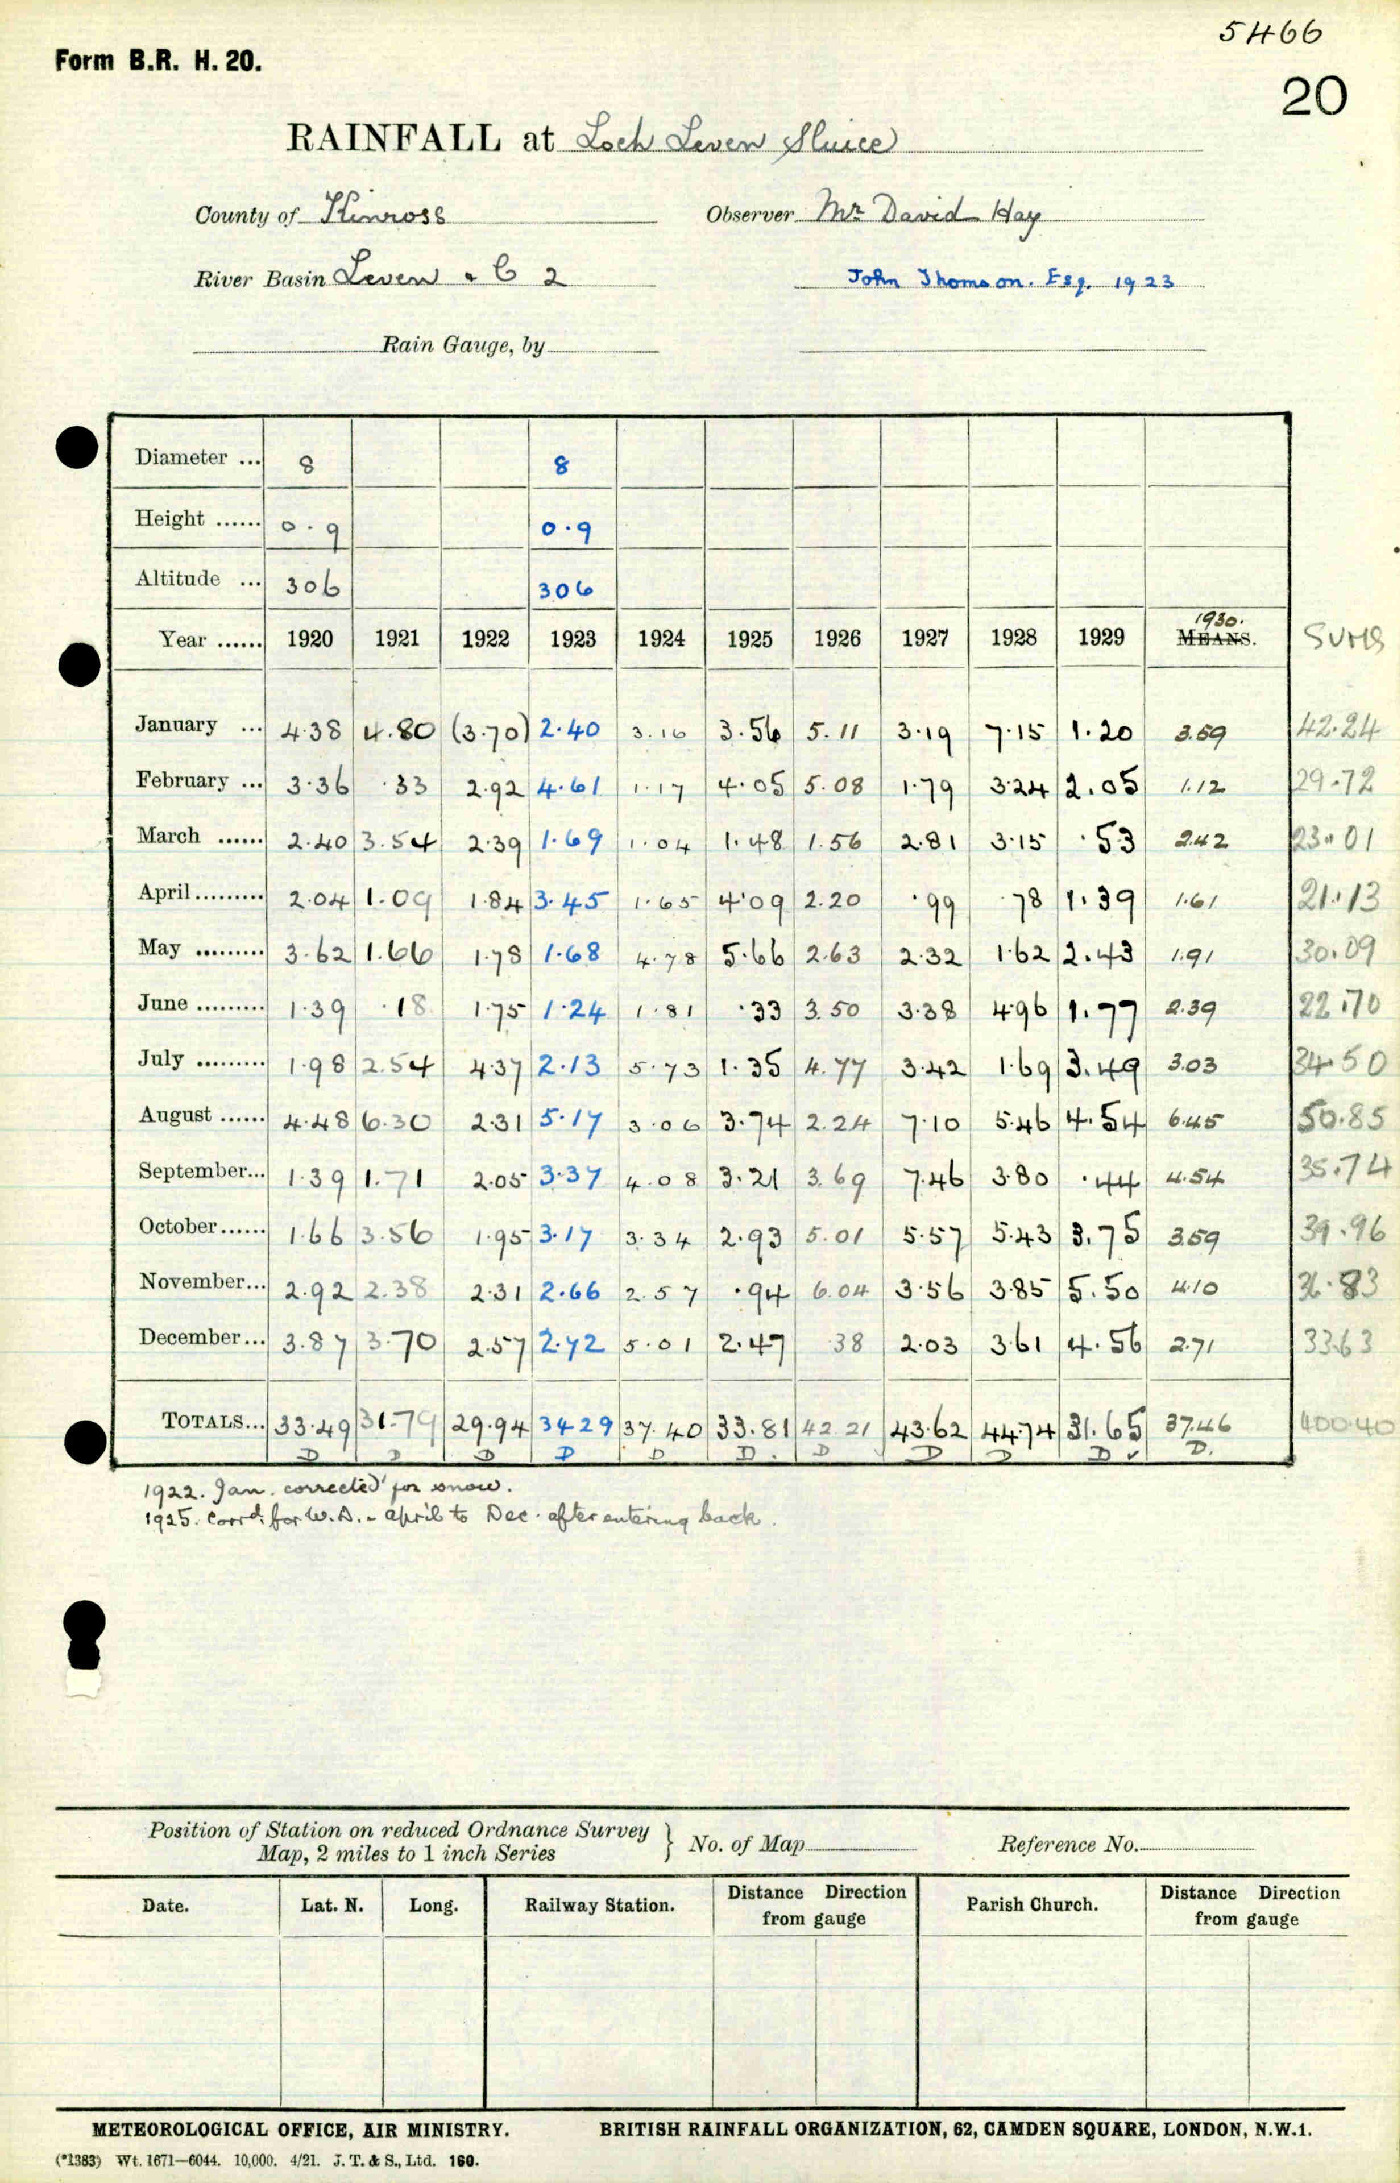 5466
20
Form B.R. H. 20.
RAINFALL at Loch Leven Sluice
County of Kinross Observer Mr David Hay
River Basin Leven & C 2 John Thomson. Esq. 1923
Rain Gauge, by
Diameter ... 8 8
Height ...... 0.9 0.9
Altitude ... 306 306
1930.
Year ...... 1920 1921 1922 1923 1924 1925 1926 1927 1928 1929 MEANS. SUMS
January ... 4.38 4.80 (3.70) 2.40 3.16 3.56 5.11 3.19 7.15 1.20 3.59 42.24
February ... 3.36 .33 2.92 4.61 1.17 4.05 5.08 1.79 3.24 2.05 1.12 29.72
March ...... 2.40 3.54 2.39 1.69 1.04 1.48 1.56 2.81 3.15 .53 2.42 23.01
April ......... 2.04 1.09 1.84 3.45 1.65 4.09 2.20 .99 .78 1.39 1.61 21.13
May ......... 3.62 1.66 1.78 1.68 4.78 5.66 2.63 2.32 1.62 2.43 1.91 30.09
June ......... 1.39 .18 1.75 1.24 1.81 .33 3.50 3.38 4.96 1.77 2.39 22.70
July ......... 1.98 2.54 4.37 2.13 5.73 1.35 4.77 3.42 1.69 3.49 3.03 34.50
August ...... 4.48 6.30 2.31 5.17 3.06 3.74 2.24 7.10 5.46 4.54 6.45 50.85
September... 1.39 1.71 2.05 3.37 4.08 3.21 3.69 7.46 3.80 .44 4.54 35.74
October...... 1.66 3.56 1.95 3.17 3.34 2.93 5.01 5.57 5.43 3.75 3.59 39.96
November... 2.92 2.38 2.31 2.66 2.57 .94 6.04 3.56 3.85 5.50 4.10 36.83
December... 3.87 3.70 2.57 2.72 5.01 2.47 .38 2.03 3.61 4.56 2.71 33.63
TOTALS... 33.49 31.79 29.94 34.29 37.40 33.81 42.21 43.62 44.74 31.65 37.46 400.40
D D D D D D. D D D D D.
1922. Jan. corrected for snow.
1925. Corrd. for W.D. - April to Dec. after entering back.
Position of Station on reduced Ordnance Survey
Map, 2 miles to 1 inch Series } No. of Map Reference No.
Date. Lat. N. Long. Railway Station. Distance Direction from gauge Parish Church. Distance Direction from gauge
METEOROLOGICAL OFFICE, AIR MINISTRY. BRITISH RAINFALL ORGANIZATION, 62, CAMDEN SQUARE, LONDON, N.W.1.
(*1383) Wt. 1671—6044. 10,000. 4/21. J. T. & S., Ltd. 160.